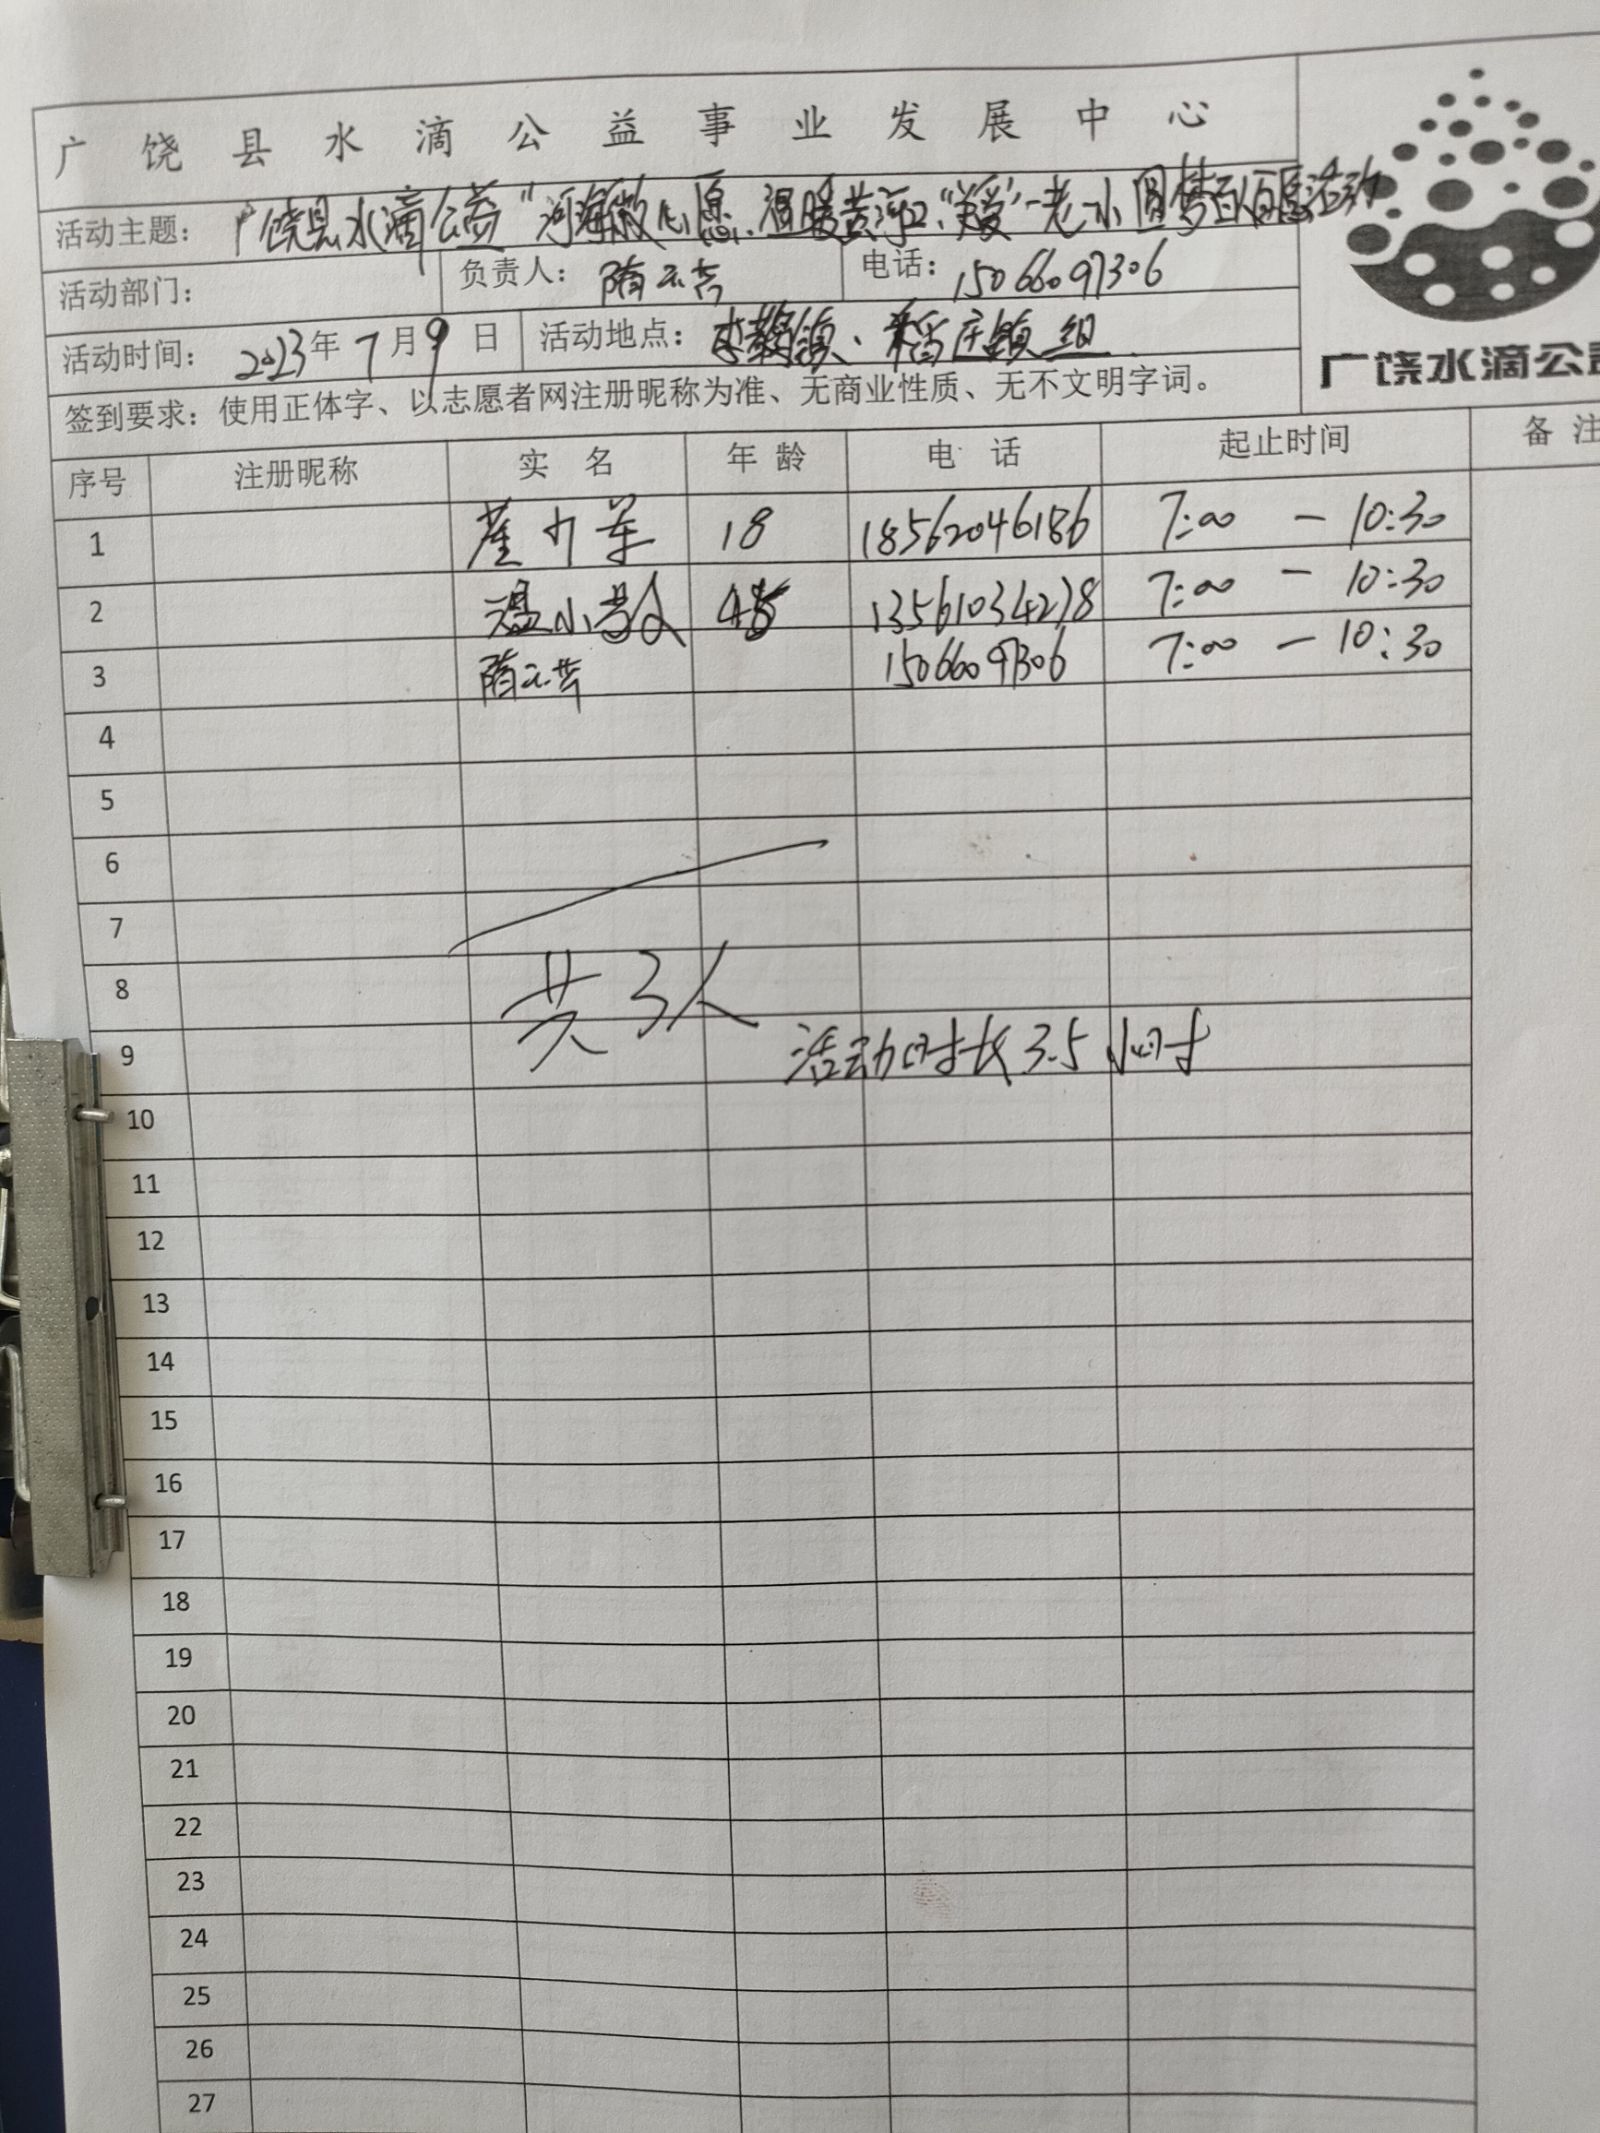 广饶县水滴公益事业发展中心
活动主题：广饶县水滴公益"河海微心愿、温暖黄河口、"关爱"一老一小圆梦百人百愿活动
活动部门：
负责人：隋云芸 电话：15066097306
活动时间：2023年7月9日 活动地点：李鹊镇、稻庄镇组
签到要求：使用正体字、以志愿者网注册昵称为准、无商业性质、无不文明字词。
广饶水滴公益
序号 注册昵称 实名 年龄 电话 起止时间 备注
1 18 18562046186 7:00 — 10:30
2 温小 13561034278 7:00 — 10:30
3 隋云芸 15066097306 7:00 — 10:30
4
5
6
7
8 共3人
9 活动时长3.5小时
10
11
12
13
14
15
16
17
18
19
20
21
22
23
24
25
26
27